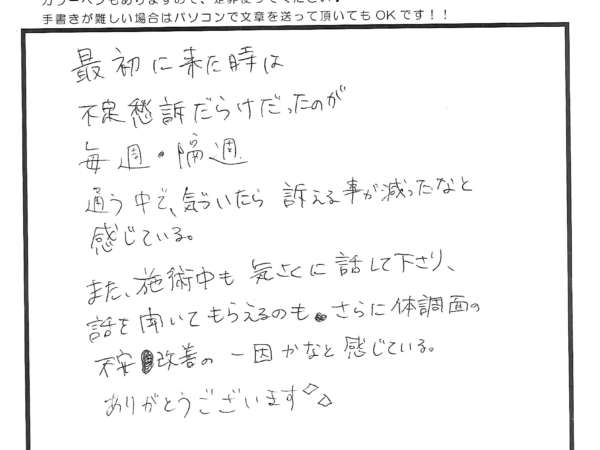 カラーペンもありますので、是非使ってください♪
手書きが難しい場合はパソコンで文章を送って頂いてもOKです！！
最初に来た時は
不定愁訴だらけだったのが
毎週・隔週
通う中で、気づいたら訴える事が減ったなと
感じている。
また、施術中も気さくに話して下さり、
話を聞いてもらえるのも さらに体調面の
不安 改善の一因かなと感じている。
ありがとうございます